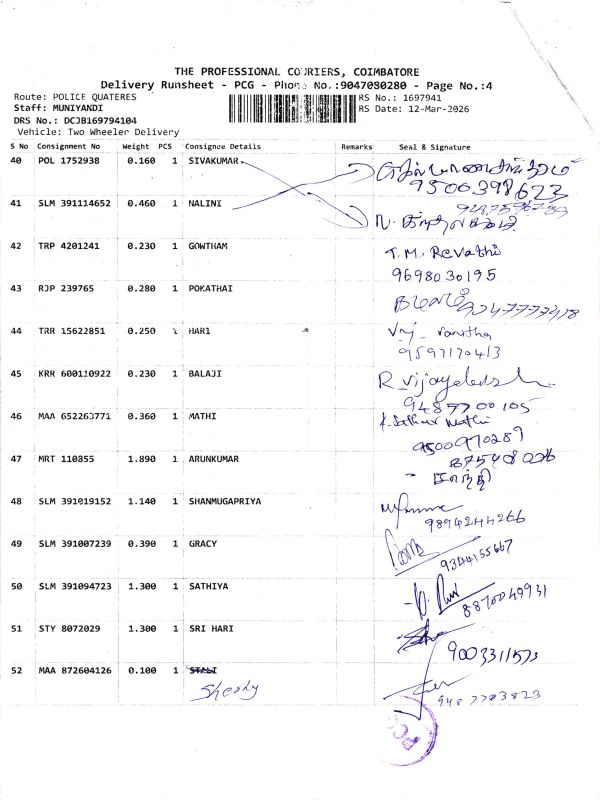 THE PROFESSIONAL COURIERS, COIMBATORE
Delivery Runsheet - PCG - Phone No.:9047080280 - Page No.:4
Route: POLICE QUATERES
RS No.: 1697941
Staff: MUNIYANDI
RS Date: 12-Mar-2026
DRS No.: DCJB169794104
Vehicle: Two Wheeler Delivery
S No Consignment No Weight PCS Consignee Details Remarks Seal & Signature
40 POL 1752938 0.160 1 SIVAKUMAR
9500398623
41 SLM 391114652 0.460 1 NALINI
42 TRP 4201241 0.230 1 GOWTHAM T.M. Revathi
9698030195
43 RJP 239765 0.280 1 POKATHAI
44 TRR 15622851 0.250 1 HARI
9597170413
45 KRR 600110922 0.230 1 BALAJI
9487700105
46 MAA 652263771 0.360 1 MATHI
9500970287
47 MRT 110855 1.890 1 ARUNKUMAR
48 SLM 391019152 1.140 1 SHANMUGAPRIYA
9894244266
49 SLM 391007239 0.390 1 GRACY
9344155667
50 SLM 391094723 1.300 1 SATHIYA
8870049931
51 STY 8072029 1.300 1 SRI HARI
9003311573
52 MAA 872604126 0.100 1 STALI
9487703823
PCG